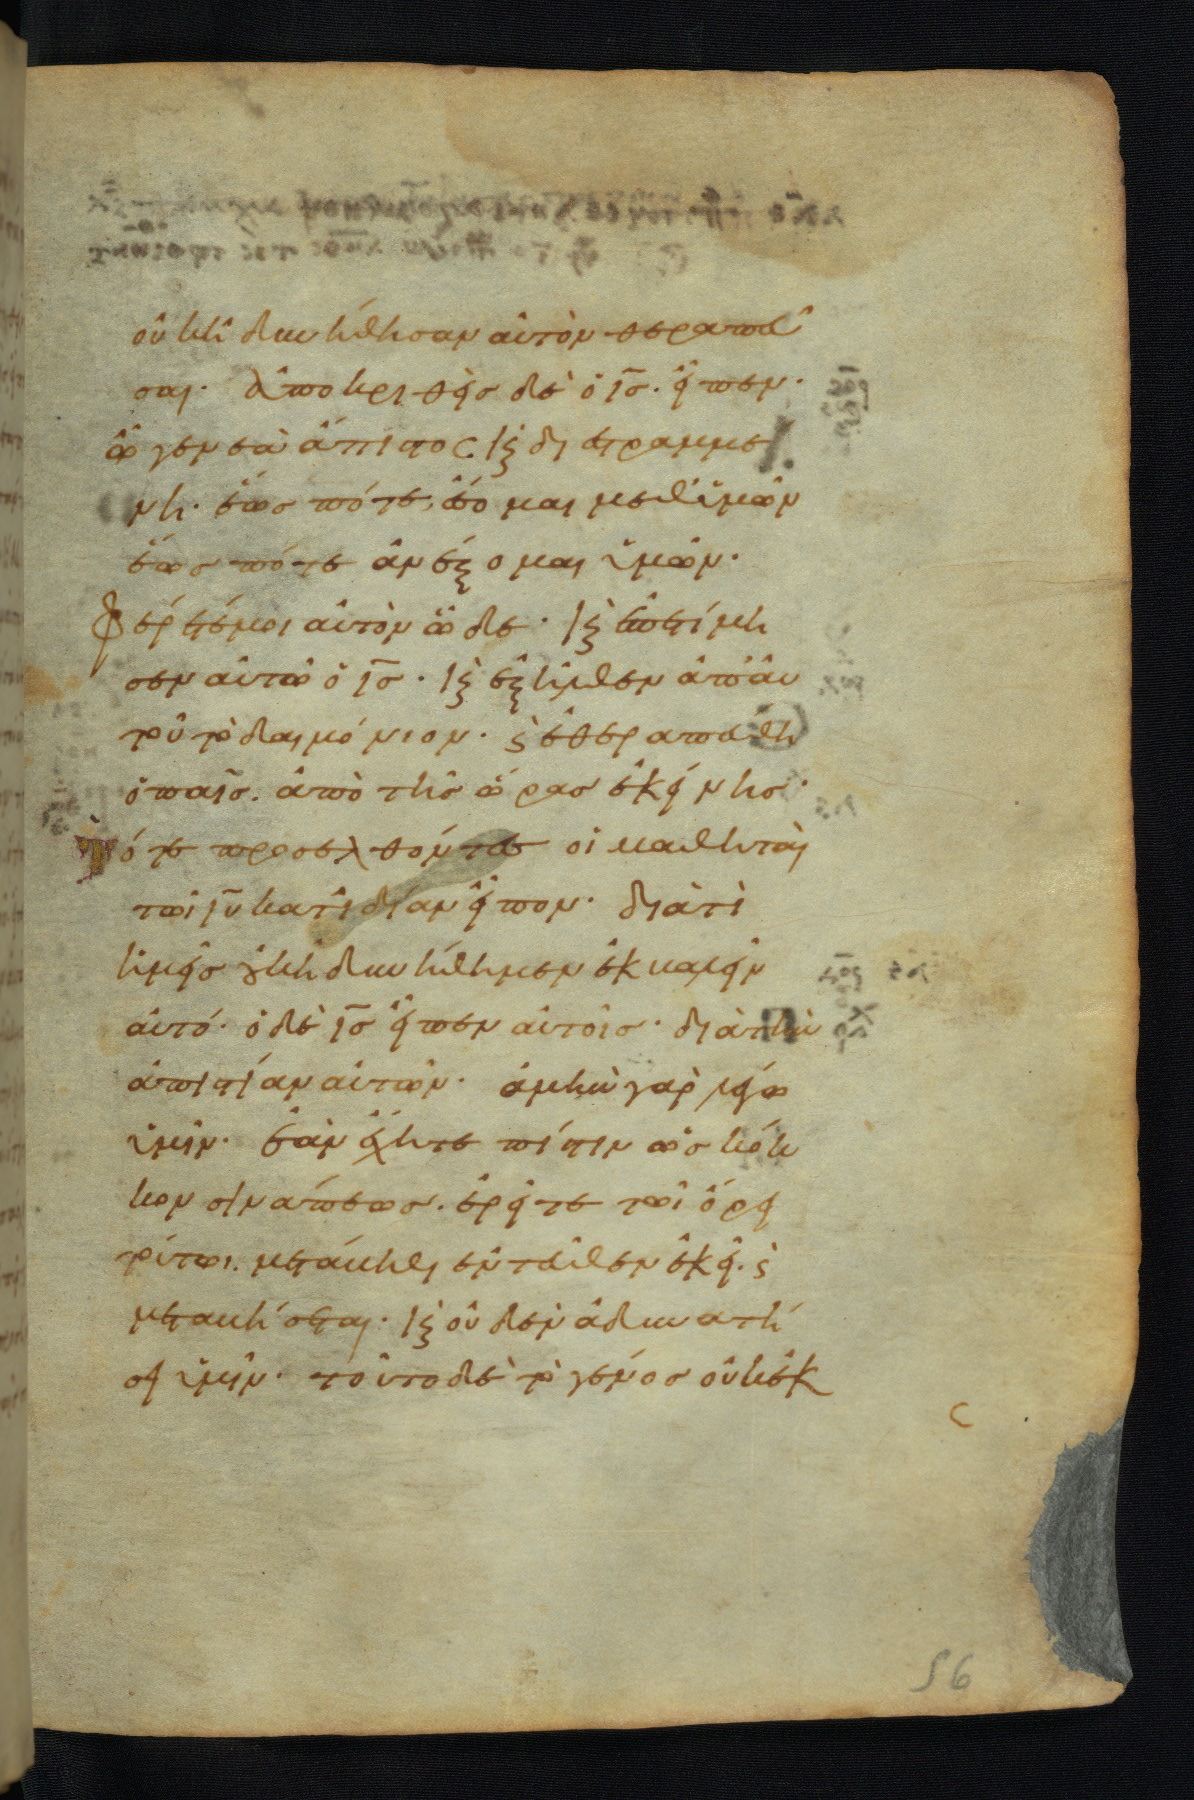 οὐκ ἠδυνήθησαν αὐτὸν θεραπεῦ
σαι. ἀποκριθεὶς δὲ ὁ ις. εἶπεν.
ὦ γενεὰ ἄπιστος κ διεστραμμέ
νη. ἕως πότε ἔσομαι μεθ' ὑμῶν
ἕως πότε ἀνέξομαι ὑμῶν.
Φέρετέ μοι αὐτὸν ὧδε. κ ἐπετίμη
σεν αὐτῶ ὁ ις. κ ἐξῆλθεν ἀπ' αὐ
τοῦ τὸ δαιμόνιον. κ ἐθεραπεύθη
ὁ παῖς. ἀπὸ τῆς ὥρας ἐκείνης.
Τότε προσελθόντες οἱ μαθηταὶ
τῶι ιυ κατ' ἰδίαν εἶπον. διατὶ
ἡμεῖς οὐκ ἠδυνήθημεν ἐκβαλεῖν
αὐτό. ὁ δὲ ις εἶπεν αὐτοῖς. διὰ τὴν
ἀπιστίαν αὐτῶν. ἀμὴν γὰρ λέγω
ὑμῖν. ἐὰν ἔχητε πίστιν ὡς κόκ
κον σινάπεως. ἐρεῖτε τῶι ὄρει
τούτωι. μετάβηθι ἐντεῦθεν ἐκεῖ. κ
μεταβήσεται. κ οὐδὲν ἀδυνατή
σει ὑμῖν. τοῦτο δὲ τὸ γένος οὐκ ἐκ
56